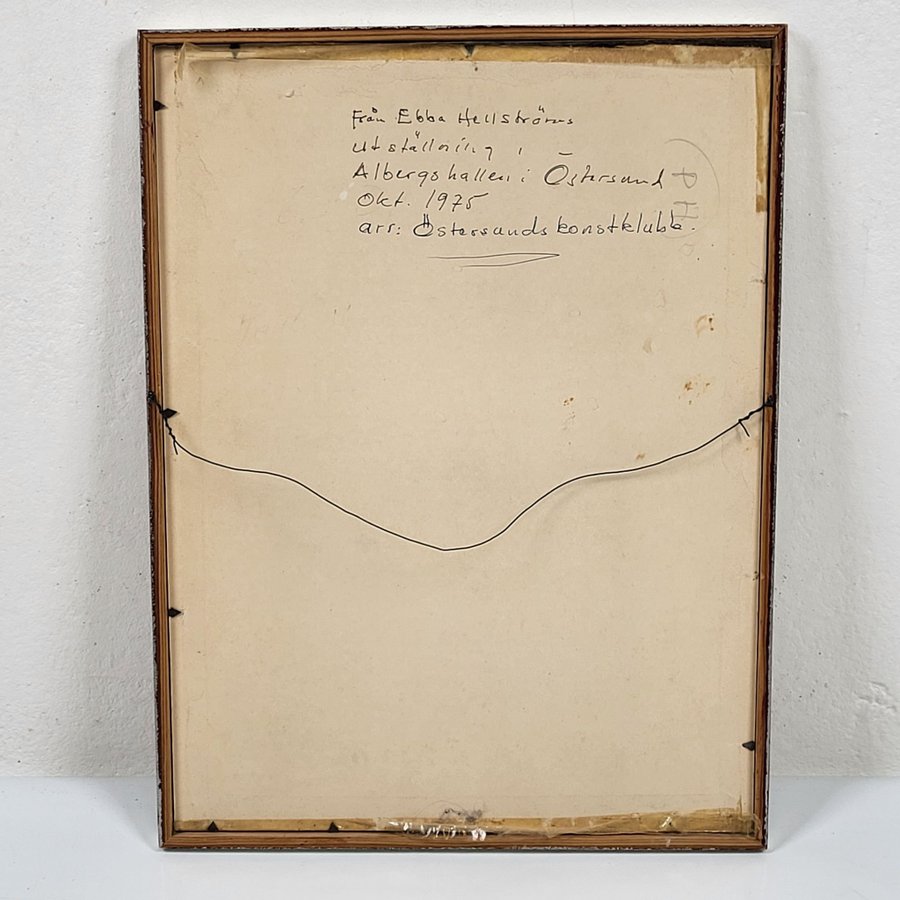 Från Ebba Hellströms
utställning i
Albergshallen i Östersund
Okt. 1975
arr: Östersunds konstklubb.